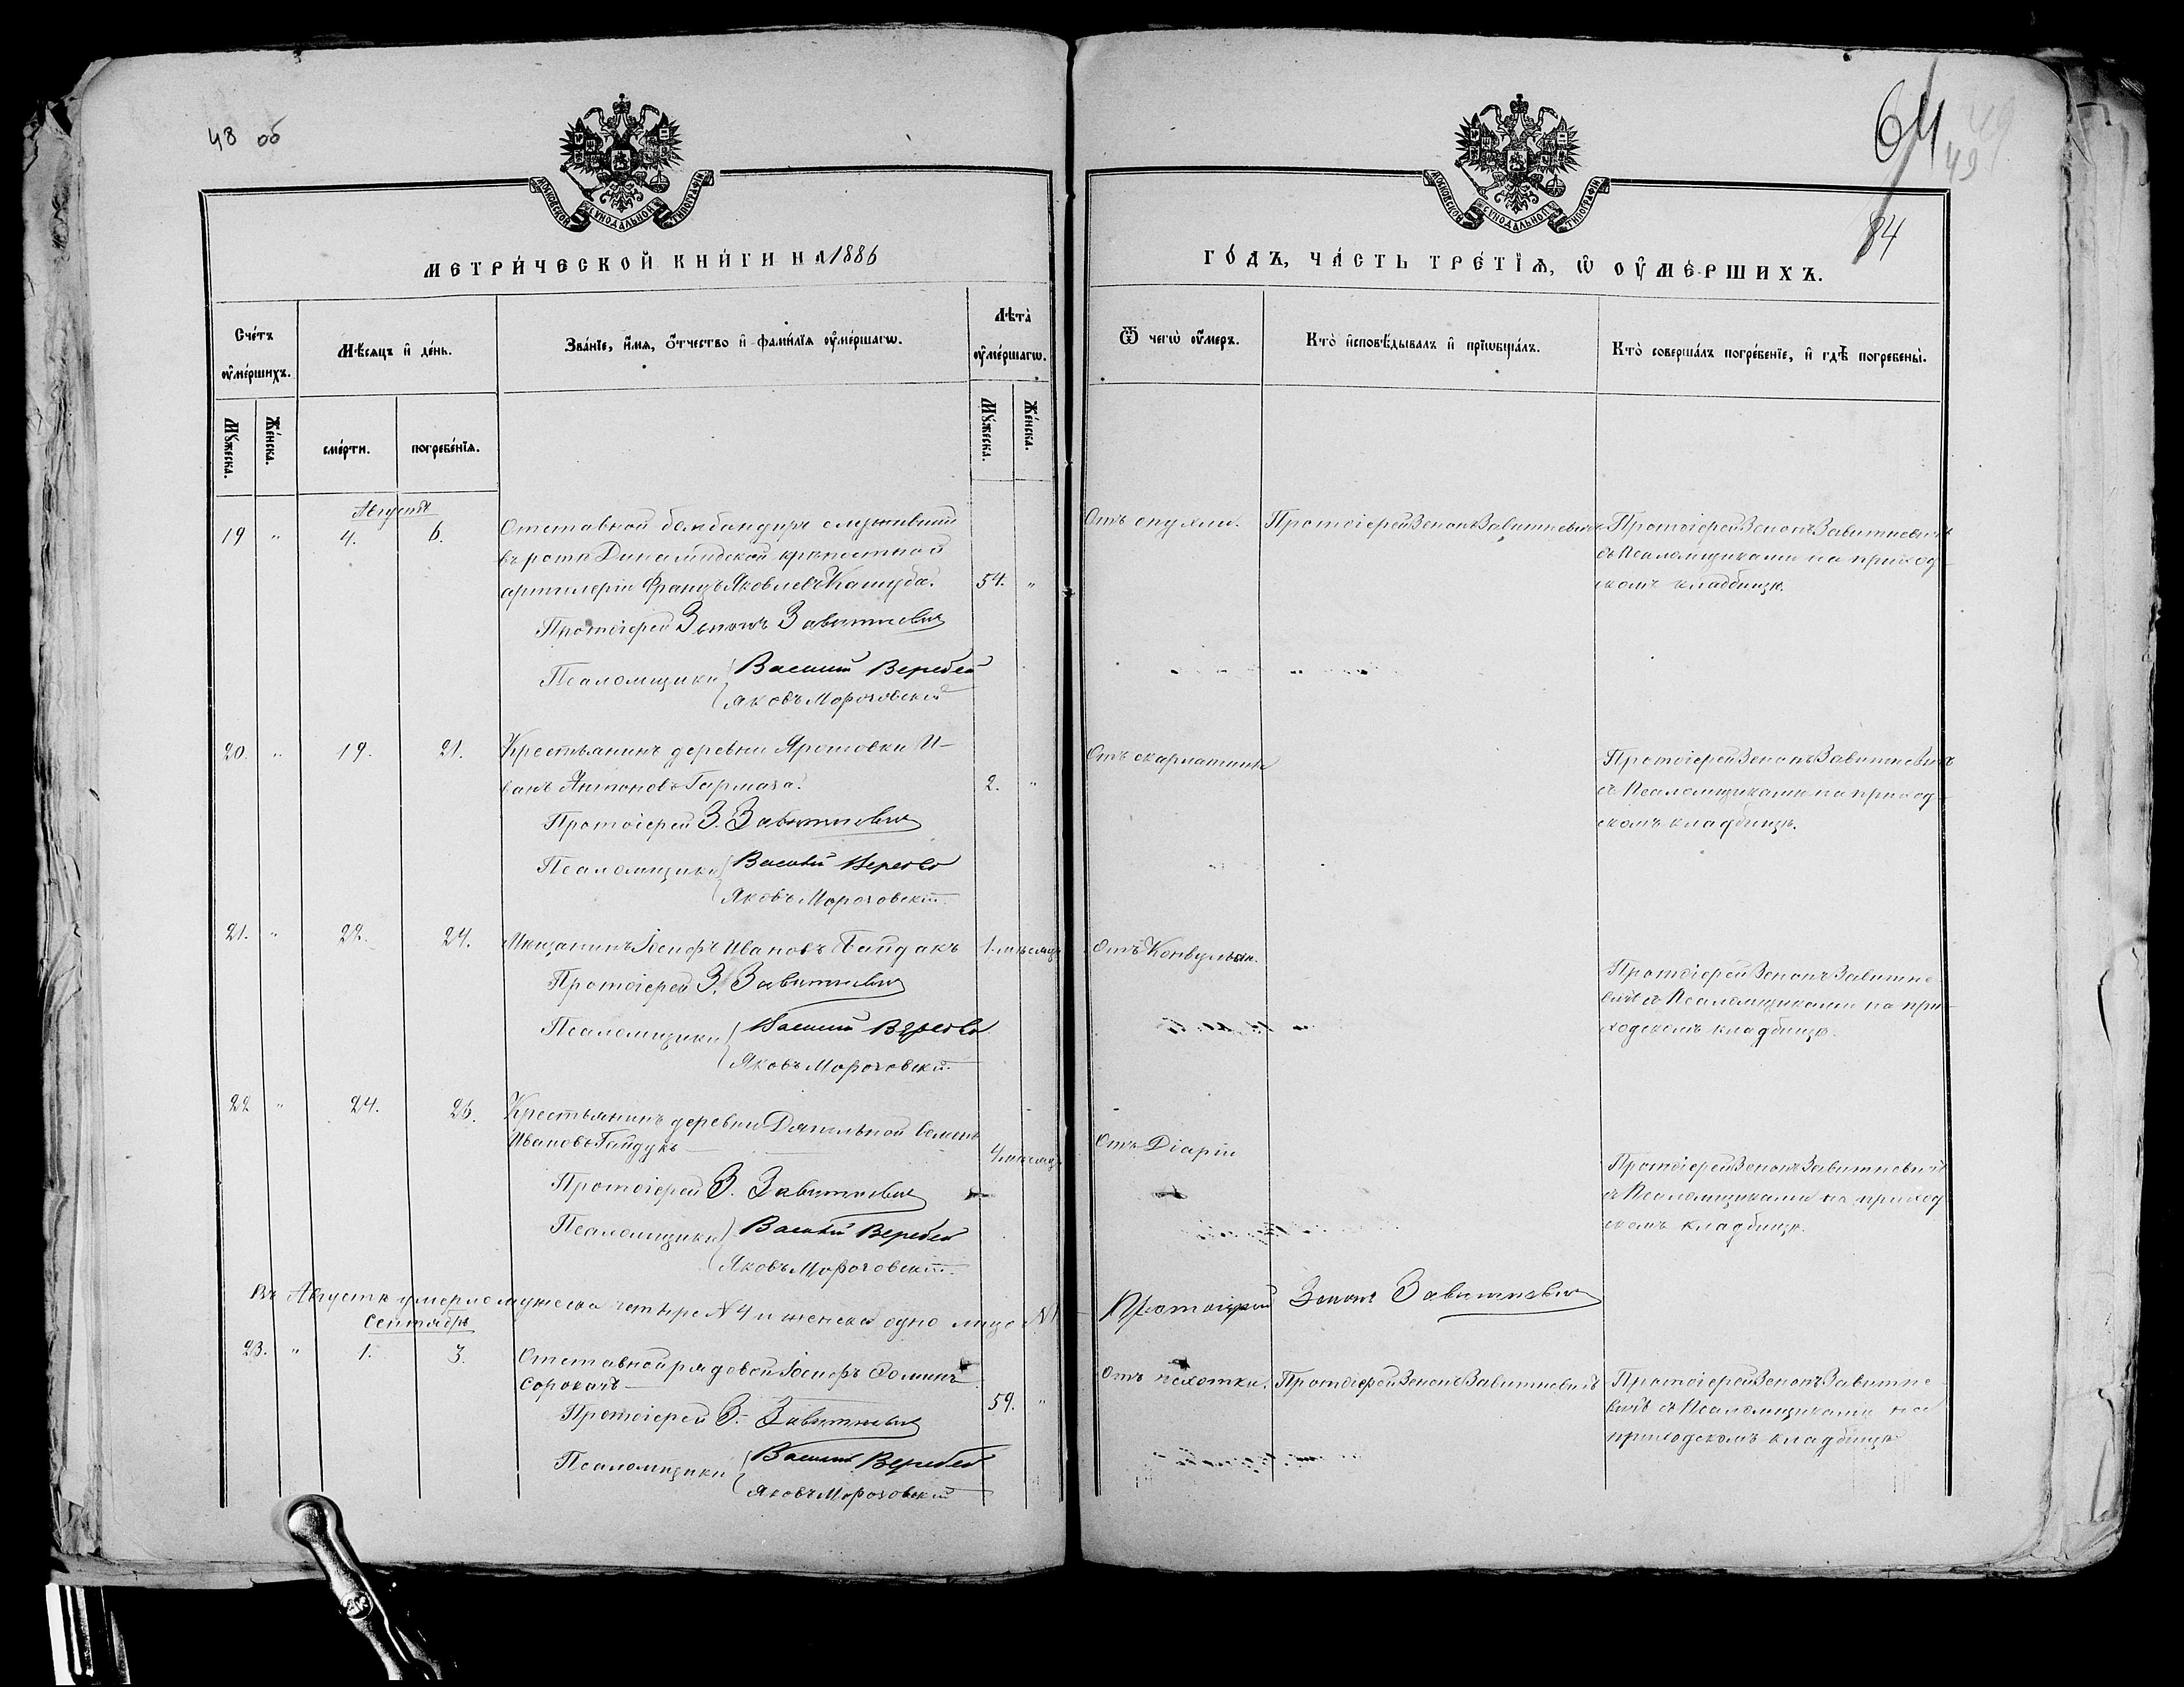 48 об
МОСКОВСКОЙ СѴНОДАЛЬНОЙ ТИПОГРАФІИ
МЕТРИ́ЧЕСКОЙ КНИ́ГИ НА 1886
Сче́тъ ᲂу҆ме́ршихъ.
Мѣ́сяцъ и҆ де́нь.
Зва́нїе, и҆́мя, ѻ҆́тчество и҆ фами́лїя ᲂу҆ме́ршагѡ.
Лѣ́та ᲂу҆ме́ршагѡ.
Мꙋ́жеска.
Же́нска.
сме́рти.
погребе́нїя.
Мꙋ́жеска.
Же́нска.
Августъ
19 " 4. 6.
Отставной бомбандиръ служившій
въ ротѣ Динаминдской крѣпостной
артилеріи Францъ Яковлевъ Кашуба. 54. "
Протоіерей Зенонъ Завитневичъ
Псаломщики Василій Веребей
Яковъ Мороговскій
20. " 19. 21.
Крестьянинъ деревни Яромовки И-
ванъ Антоновъ Гармаза. 2. "
Протоіерей З. Завитневичъ
Псаломщики Василій Веребей
Яковъ Мороговскій
21. " 22. 24.
Мѣщанинъ Іосифъ Ивановъ Гайдакъ 1. мѣсяцъ
Протоіерей З. Завитневичъ
Псаломщики Василій Веребей
Яковъ Мороговскій
22 " 24. 26.
Крестьянинъ деревни Дягильной Семенъ
Ивановъ Гайдукъ 4 мѣсяц
Протоіерей З. Завитневичъ
Псаломщики Василій Веребей
Яковъ Мороговскій
Въ Августѣ умерло мужеска четыре N 4 и женска одно лицо N 1
Сентябрь
23. " 1. 3.
Отставной рядовой Іосифъ Ѳоминъ
Сорокачъ 59. "
Протоіерей З. Завитневичъ
Псаломщики Василій Веребей
Яковъ Мороговскій
64
49
49
84
МОСКОВСКОЙ СѴНОДАЛЬНОЙ ТИПОГРАФІИ
ГО́ДЪ, ЧА́СТЬ ТРЕ́ТЇЯ, Ѡ҆ ОУ҆МЕ́РШИХЪ.
Ѿ чегѡ̀ ᲂу҆́меръ.
Кто̀ и҆сповѣ́дывалъ и҆ прїѡбща́лъ.
Кто̀ соверша́лъ погребе́нїе, и҆ гдѣ̀ погребены̀.
Отъ опухли.
Протоіерей Зенонъ Завитневичъ
Протоіерей Зенонъ Завитневичъ
съ Псаломщиками на приход-
скомъ кладбищѣ.
Отъ скарлатины
Протоіерей Зенонъ Завитневичъ
съ Псаломщиками на приход-
скомъ кладбищѣ.
Отъ Конвульсіи.
Протоіерей Зенонъ Завитне
вичъ съ Псаломщиками на при-
ходскомъ кладбищѣ.
Отъ Діаріи
Протоіерей Зенонъ Завитневичъ
съ Псаломщиками на приход
скомъ кладбищѣ.
Протоіерей Зенонъ Завитневичъ
Отъ чахотки.
Протоіерей Зенонъ Завитневичъ
Протоіерей Зенонъ Завитне
вичъ съ Псаломщиками на
приходскомъ кладбищѣ